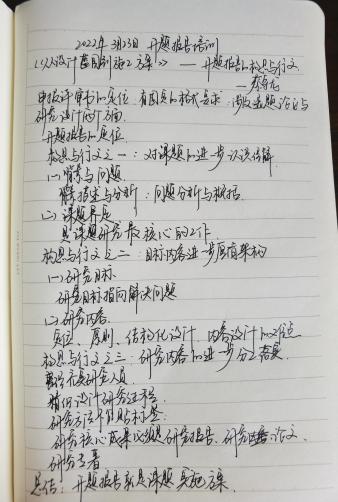 2022年3月23日 开题报告培训
《从设计蓝图到施工方案》——开题报告的构思与行文
申报评审书的定位、有固定的格式要求、涉及选题论证与
研究设计两方面
开题报告的定位
构思与行文之一：对课题的进一步认识与理解
(一)情景与问题
情景描述与分析：问题分析与根据
(二)课题界定
是课题研究最核心的工作
构思与行文之二：目标内容进一步厘清架构
(一)研究目标
研究目标指向解决问题
(二)研究内容
定位、原则、结构化设计、内容设计的难点
构思与行文之三：研究内容的进一步分工落实
研究人员
设计研究过程
研究方法不贴标签
研究核心成果必须是研究报告、研究论文
研究专著
总结：开题报告就是课题实施方案